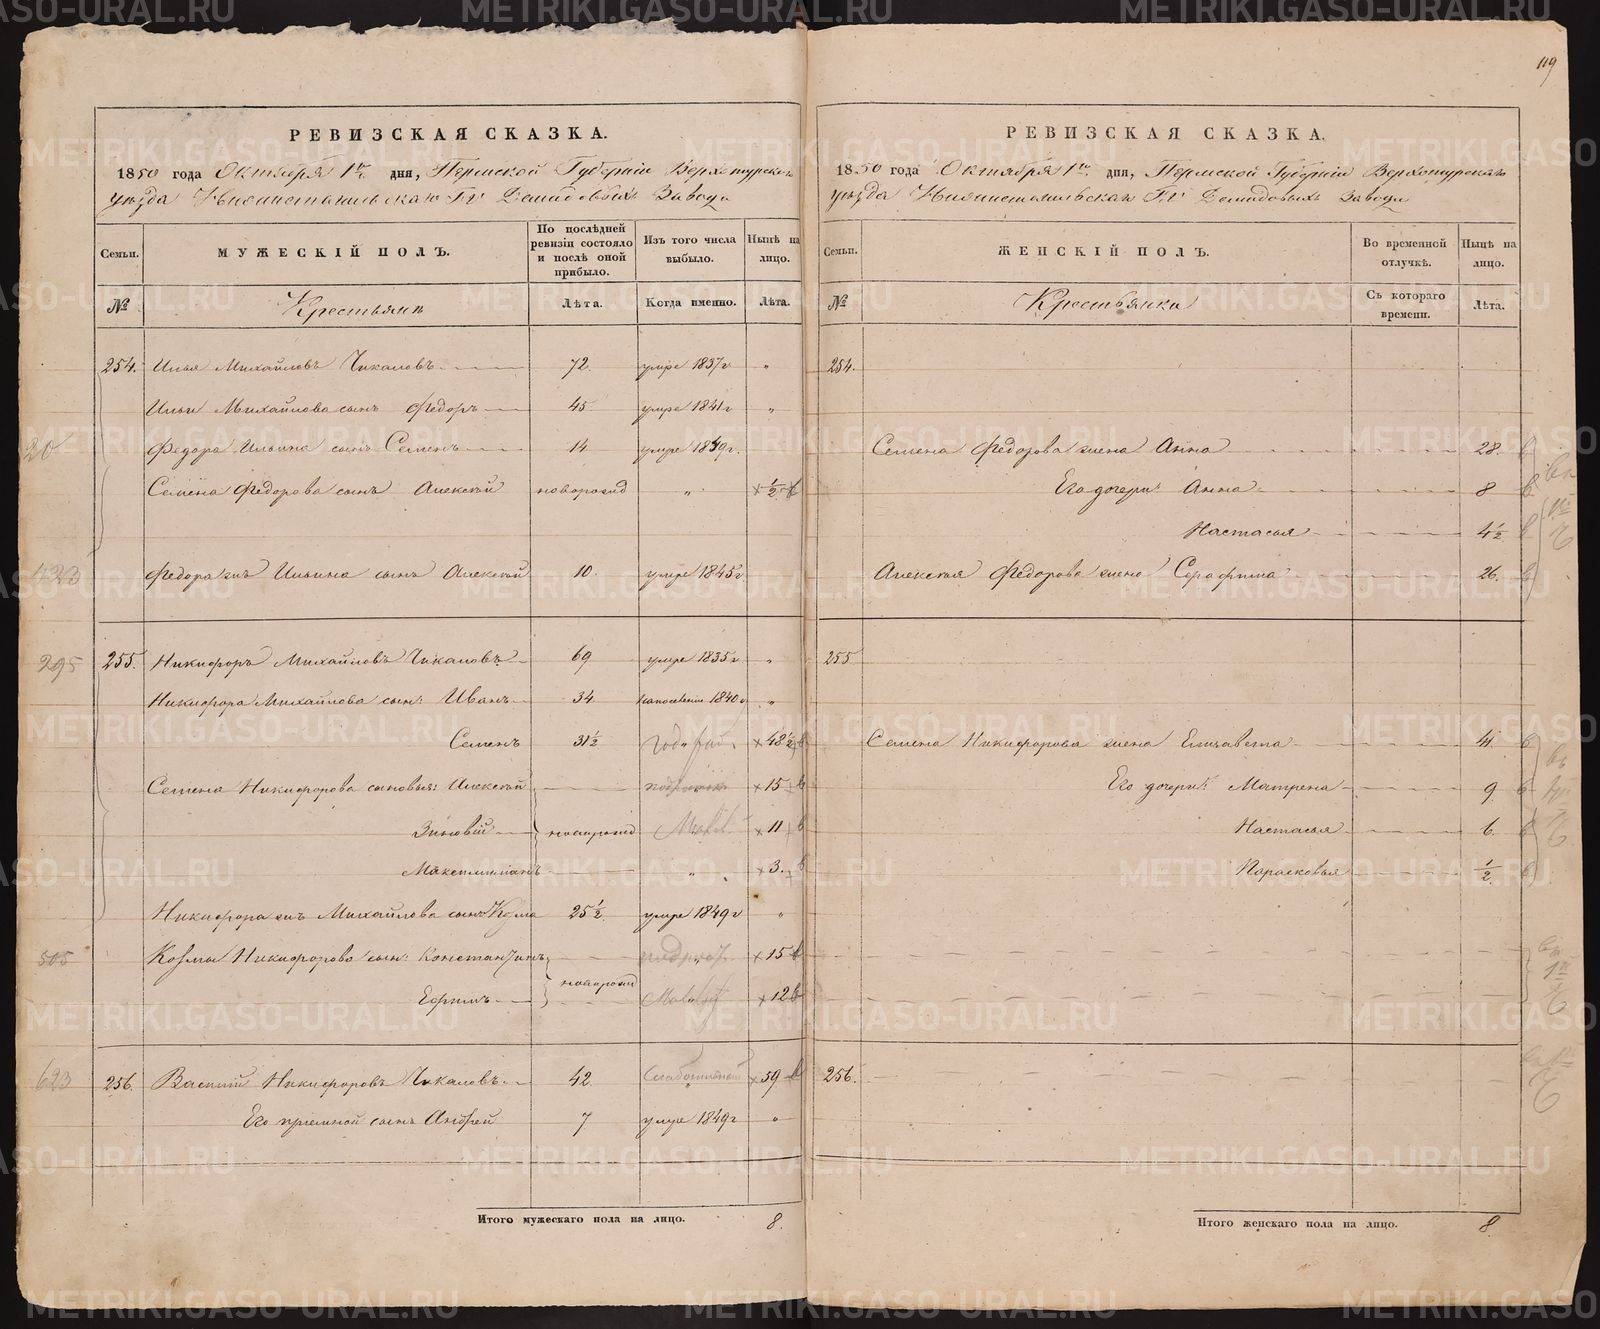 119
РЕВИЗСКАЯ СКАЗКА.
1850 года Октября 1го дня, Пермской Губерніи Верхотурскаго
уѣзда Нижнетагильскаго Гг Демидовыхъ Завода
Семьи. МУЖЕСКІЙ ПОЛЪ. По послѣдней ревизіи состояло и послѣ оной прибыло. Изъ того числа выбыло. Нынѣ на лицо.
№ Крестьяне Лѣта. Когда именно. Лѣта.
254. Илья Михайловъ Чикаловъ 72. умре 1837г "
Ильи Михайлова сынъ Федоръ 45 умре 1841г "
20 Федора Ильина сынъ Семенъ 14 умре 1849г.
Семена Федорова сынъ Алексѣй новорожд " ×½ в
423 Федора жъ Ильина сынъ Алексѣй 10. умре 1845г
295 255. Никифоръ Михайловъ Чикаловъ 69 умре 1835г "
Никифора Михайлова сынъ Иванъ 34 1840г "
Семенъ 31½ ×48½ в
Семена Никифорова сыновья: Алексѣй ×15 в
Зиновій новорожд ×11 в
Максимиліанъ " ×3. в
Никифора жъ Михайлова сынъ Козма 25½ умре 1849г "
505 Козмы Никифорова сын: Константинъ ×15 в
Ефимъ новорожд ×12 в
623 256. Василій Никифоровъ Чикаловъ 42 ×59 в
Его пріемной сынъ Андрей 7 умре 1849г "
Итого мужескаго пола на лицо. 8.
РЕВИЗСКАЯ СКАЗКА.
1850 года Октября 1го дня, Пермской Губерніи Верхотурскаго
уѣзда Нижнетагильскаго Гг Демидовыхъ Завода
Семьи. ЖЕНСКІЙ ПОЛЪ. Во временной отлучкѣ. Нынѣ на лицо.
№ Крестьянки Съ котораго времени. Лѣта.
254.
Семена Федорова жена Анна 28. в
Его дочери: Анна 8 в
Настасья 4½ в
Алексѣя Федорова жена Серафима 26. в
255.
Семена Никифорова жена Елизавета 41. в
Его дочери: Матрена 9 в
Настасья 6. в
Парасковья ½ в
256.
Итого женскаго пола на лицо. 8
METRIKI.GASO-URAL.RU